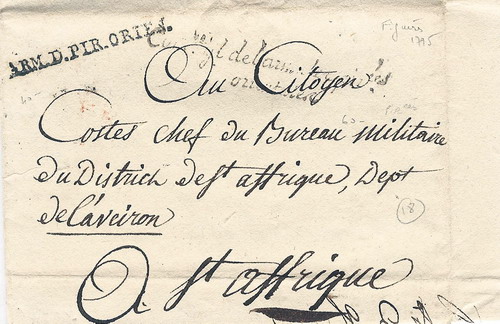 ARM.D.PIR.ORIEN.
Figuères
1795
Au Citoyen
Costes chef du Bureau militaire
du District de St affrique, Dept
de l'aveiron
18
A St affrique